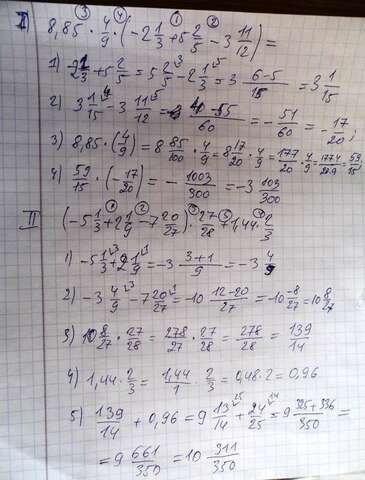 ③ ④ ① ②
I 8,85 · 4/9 · (-2 1/3 + 5 2/5 - 3 11/12) =
1) 2 1/3 + 5 2/5 = 5 2/5 - 2 1/3 = 3 6-5/15 = 3 1/15
2) 3 1/15 - 3 11/12 = 4-55/60 = - 51/60 = - 17/20;
3) 8,85 · (4/9) = 8 85/100 · 4/9 = 8 17/20 · 4/9 = 177/20 · 4/9 = 177·4/20·9 = 59/15
4) 59/15 · (- 17/20) = - 1003/300 = -3 103/300
① ② ③ ⑤ ④
II (-5 1/3 + 2 1/9 - 7 20/27) · 27/28 + 1,44 · 2/3
1) -5 1/3 + 2 1/9 = -3 3+1/9 = -3 4/9
2) -3 4/9 - 7 20/27 = -10 12-20/27 = -10 -8/27 = 10 8/27
3) 10 8/27 · 27/28 = 278/27 · 27/28 = 278/28 = 139/14
4) 1,44 · 2/3 = 1,44/1 · 2/3 = 0,48 · 2 = 0,96
5) 139/14 + 0,96 = 9 13/14 + 24/25 = 9 325+336/350 =
= 9 661/350 = 10 311/350